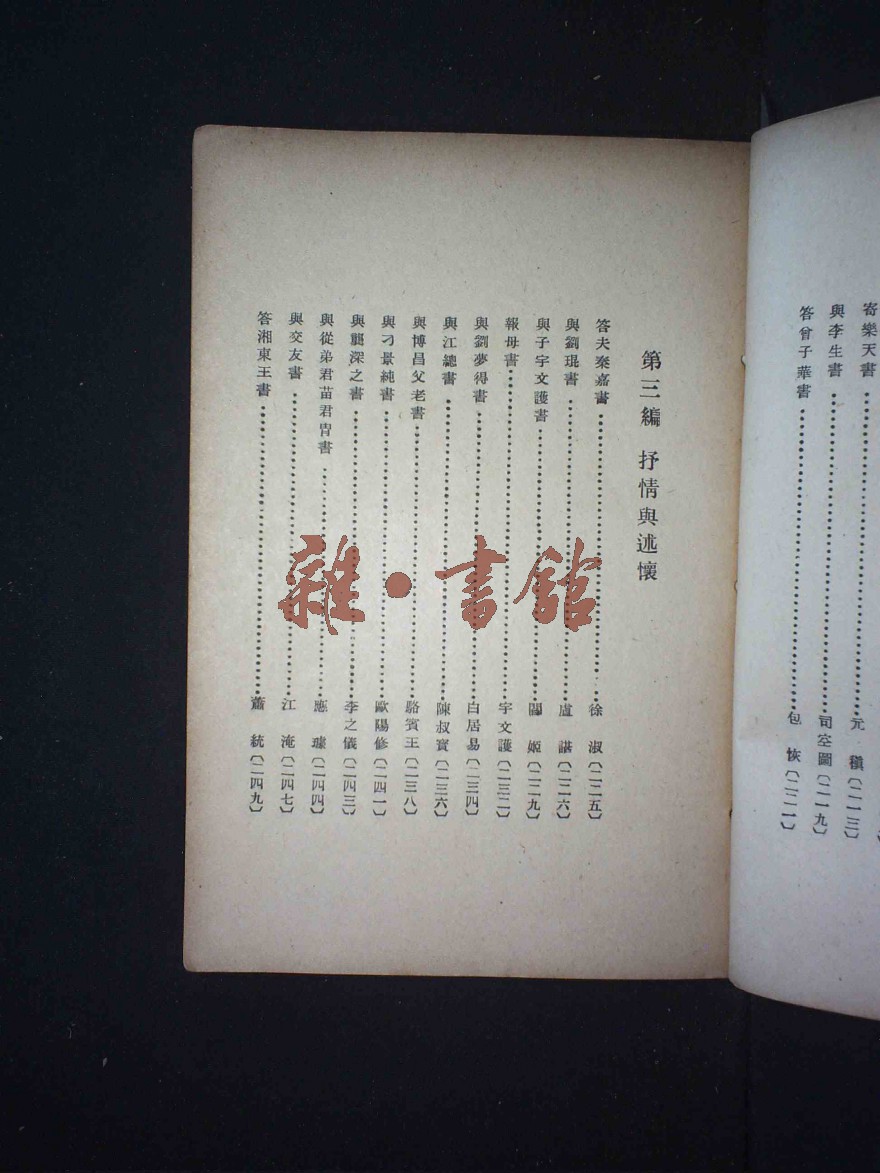 寄樂天書……元 稹〔二一三〕
與李生書……司空圖〔二一九〕
答曾子華書……包 恢〔二二一〕
第三編 抒情與述懷
答夫秦嘉書……徐 淑〔二二五〕
與劉琨書……盧 諶〔二二六〕
與子宇文護書……閻 姬〔二二九〕
報母書……宇文護〔二三二〕
與劉夢得書……白居易〔二三四〕
與江總書……陳叔寶〔二三六〕
與博昌父老書……駱賓王〔二三八〕
與刁景純書……歐陽修〔二四一〕
與龔深之書……李之儀〔二四三〕
與從弟君苗君冑書……應 璩〔二四四〕
與交友書……江 淹〔二四七〕
答湘東王書……蕭 統〔二四九〕
雜·書館